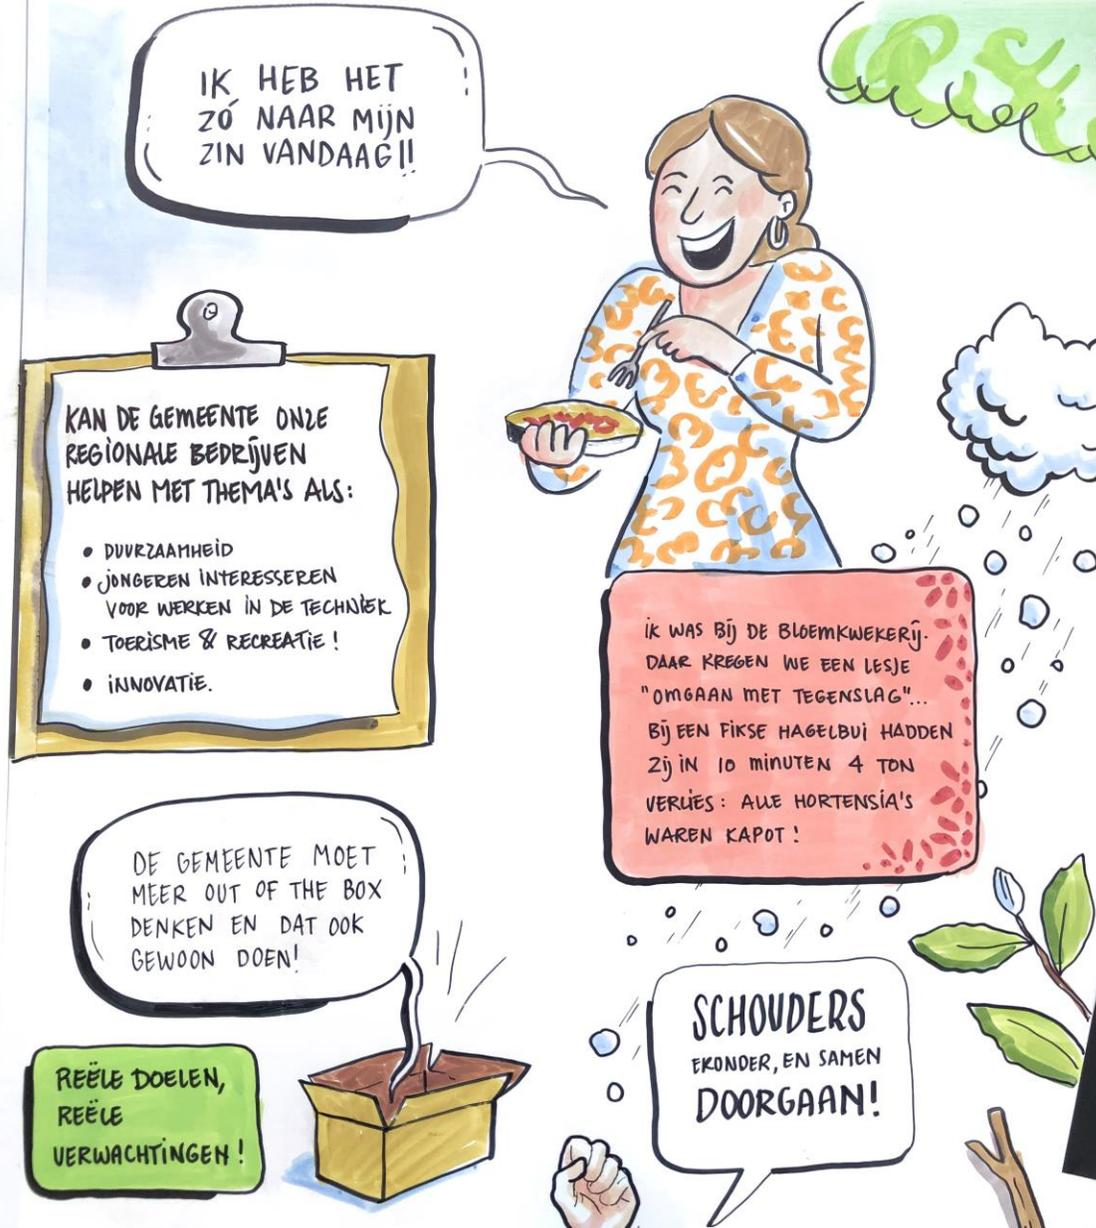 IK HEB HET
ZÓ NAAR MIJN
ZIN VANDAAG!!
KAN DE GEMEENTE ONZE
REGIONALE BEDRIJVEN
HELPEN MET THEMA'S ALS:
• DUURZAAMHEID
• JONGEREN INTERESSEREN
VOOR WERKEN IN DE TECHNIEK
• TOERISME & RECREATIE!
• INNOVATIE.
IK WAS BIJ DE BLOEMKWEKERIJ.
DAAR KREGEN WE EEN LESJE
"OMGAAN MET TEGENSLAG"...
BIJ EEN FIKSE HAGELBUI HADDEN
ZIJ IN 10 MINUTEN 4 TON
VERLIES: ALLE HORTENSIA'S
WAREN KAPOT!
DE GEMEENTE MOET
MEER OUT OF THE BOX
DENKEN EN DAT OOK
GEWOON DOEN!
REËLE DOELEN,
REËLE
VERWACHTINGEN!
SCHOUDERS
ERONDER, EN SAMEN
DOORGAAN!